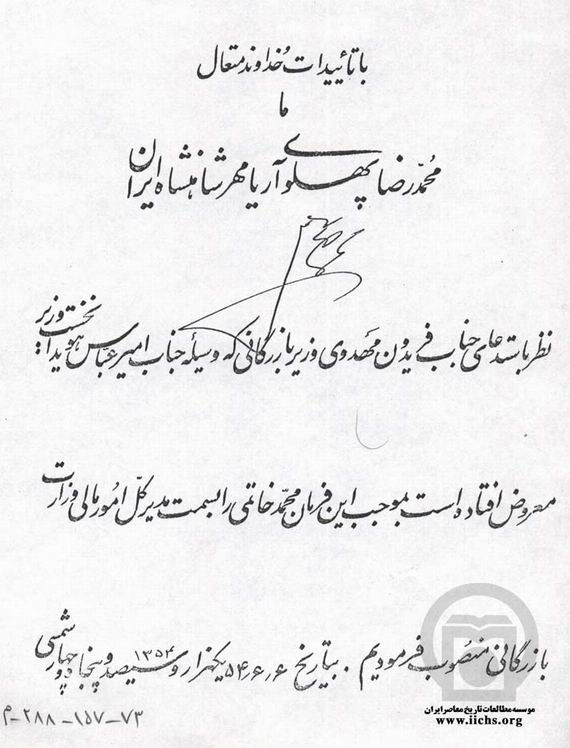 با تأییدات خداوند متعال
ما
محمدرضا پهلوی آریامهر شاهنشاه ایران
نظر باستدعای جناب فریدون مهدوی وزیر بازرگانی که وسیله جناب امیر عباس هویدا نخست وزیر
معروض افتاده است بموجب این فرمان محمد خاتمی را بسمت مدیر کل امور مالی وزارت
بازرگانی منصوب فرمودیم . بتاریخ ۵۴٫۶٫۶ یکهزار و سیصد و پنجاه و چهار شمسی
۱۳۵۴
موسسه مطالعات تاریخ معاصر ایران
www.iichs.org
۷۳-۱۵۷-۲۸۸-م